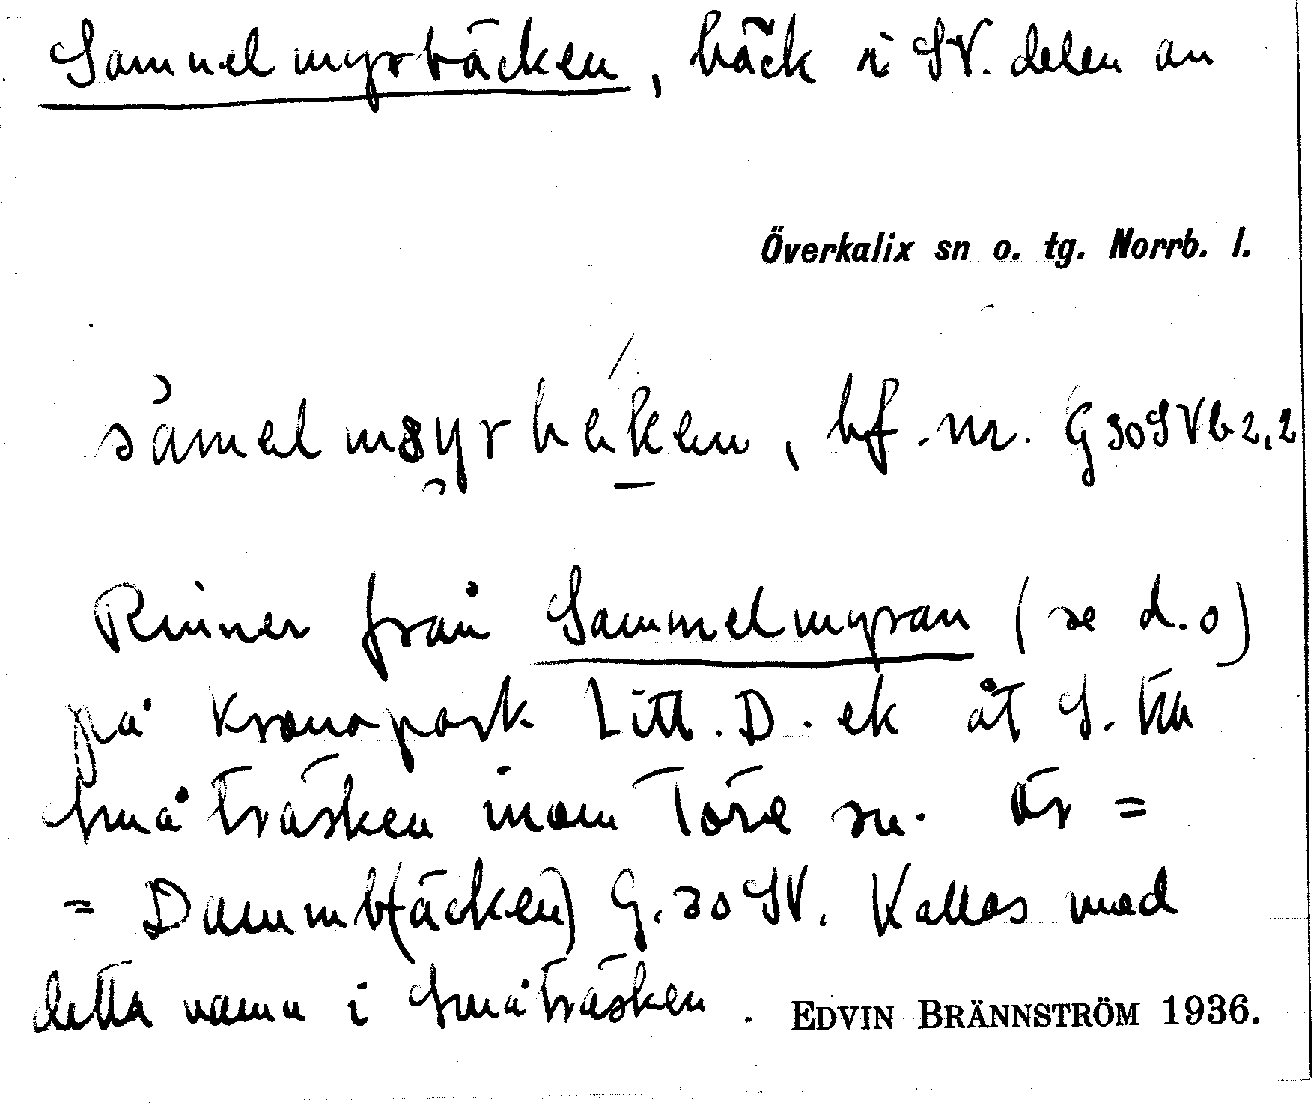 Samuelmyrbäcken, bäck i SV. delen av
Överkalix sn o. tg. Norrb. l.
bf. nr. G 30 SV b 2,2
Rinner från Sammelmyran (se d.o)
på kronopark Litt. D. ek åt S. till
Småträsken inom Töre sn. Är =
= Dammb(äcken) G. 30 SV. Kallas med
detta namn i Småträsken. EDVIN BRÄNNSTRÖM 1936.